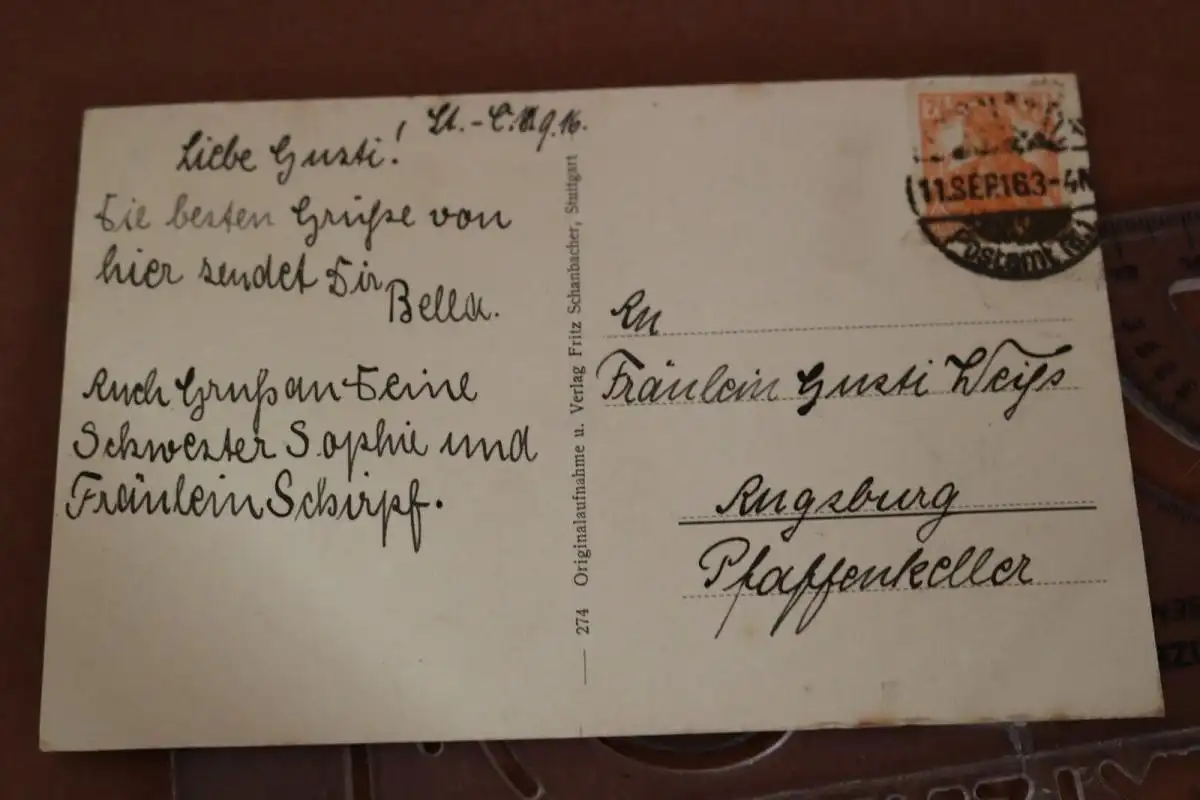 St.-C. 9.16.
Liebe Gusti!
Die besten Grüße von
hier sendet Dir
Bella.
Auch Gruß an Deine
Schwester Sophie und
Fräulein Schirpf.
274 Originalaufnahme u. Verlag Fritz Schanbacher, Stuttgart
11.SEP.16 3-4N
Postamt
An
Fräulein Gusti Weiß
Augsburg
Pfaffenkeller